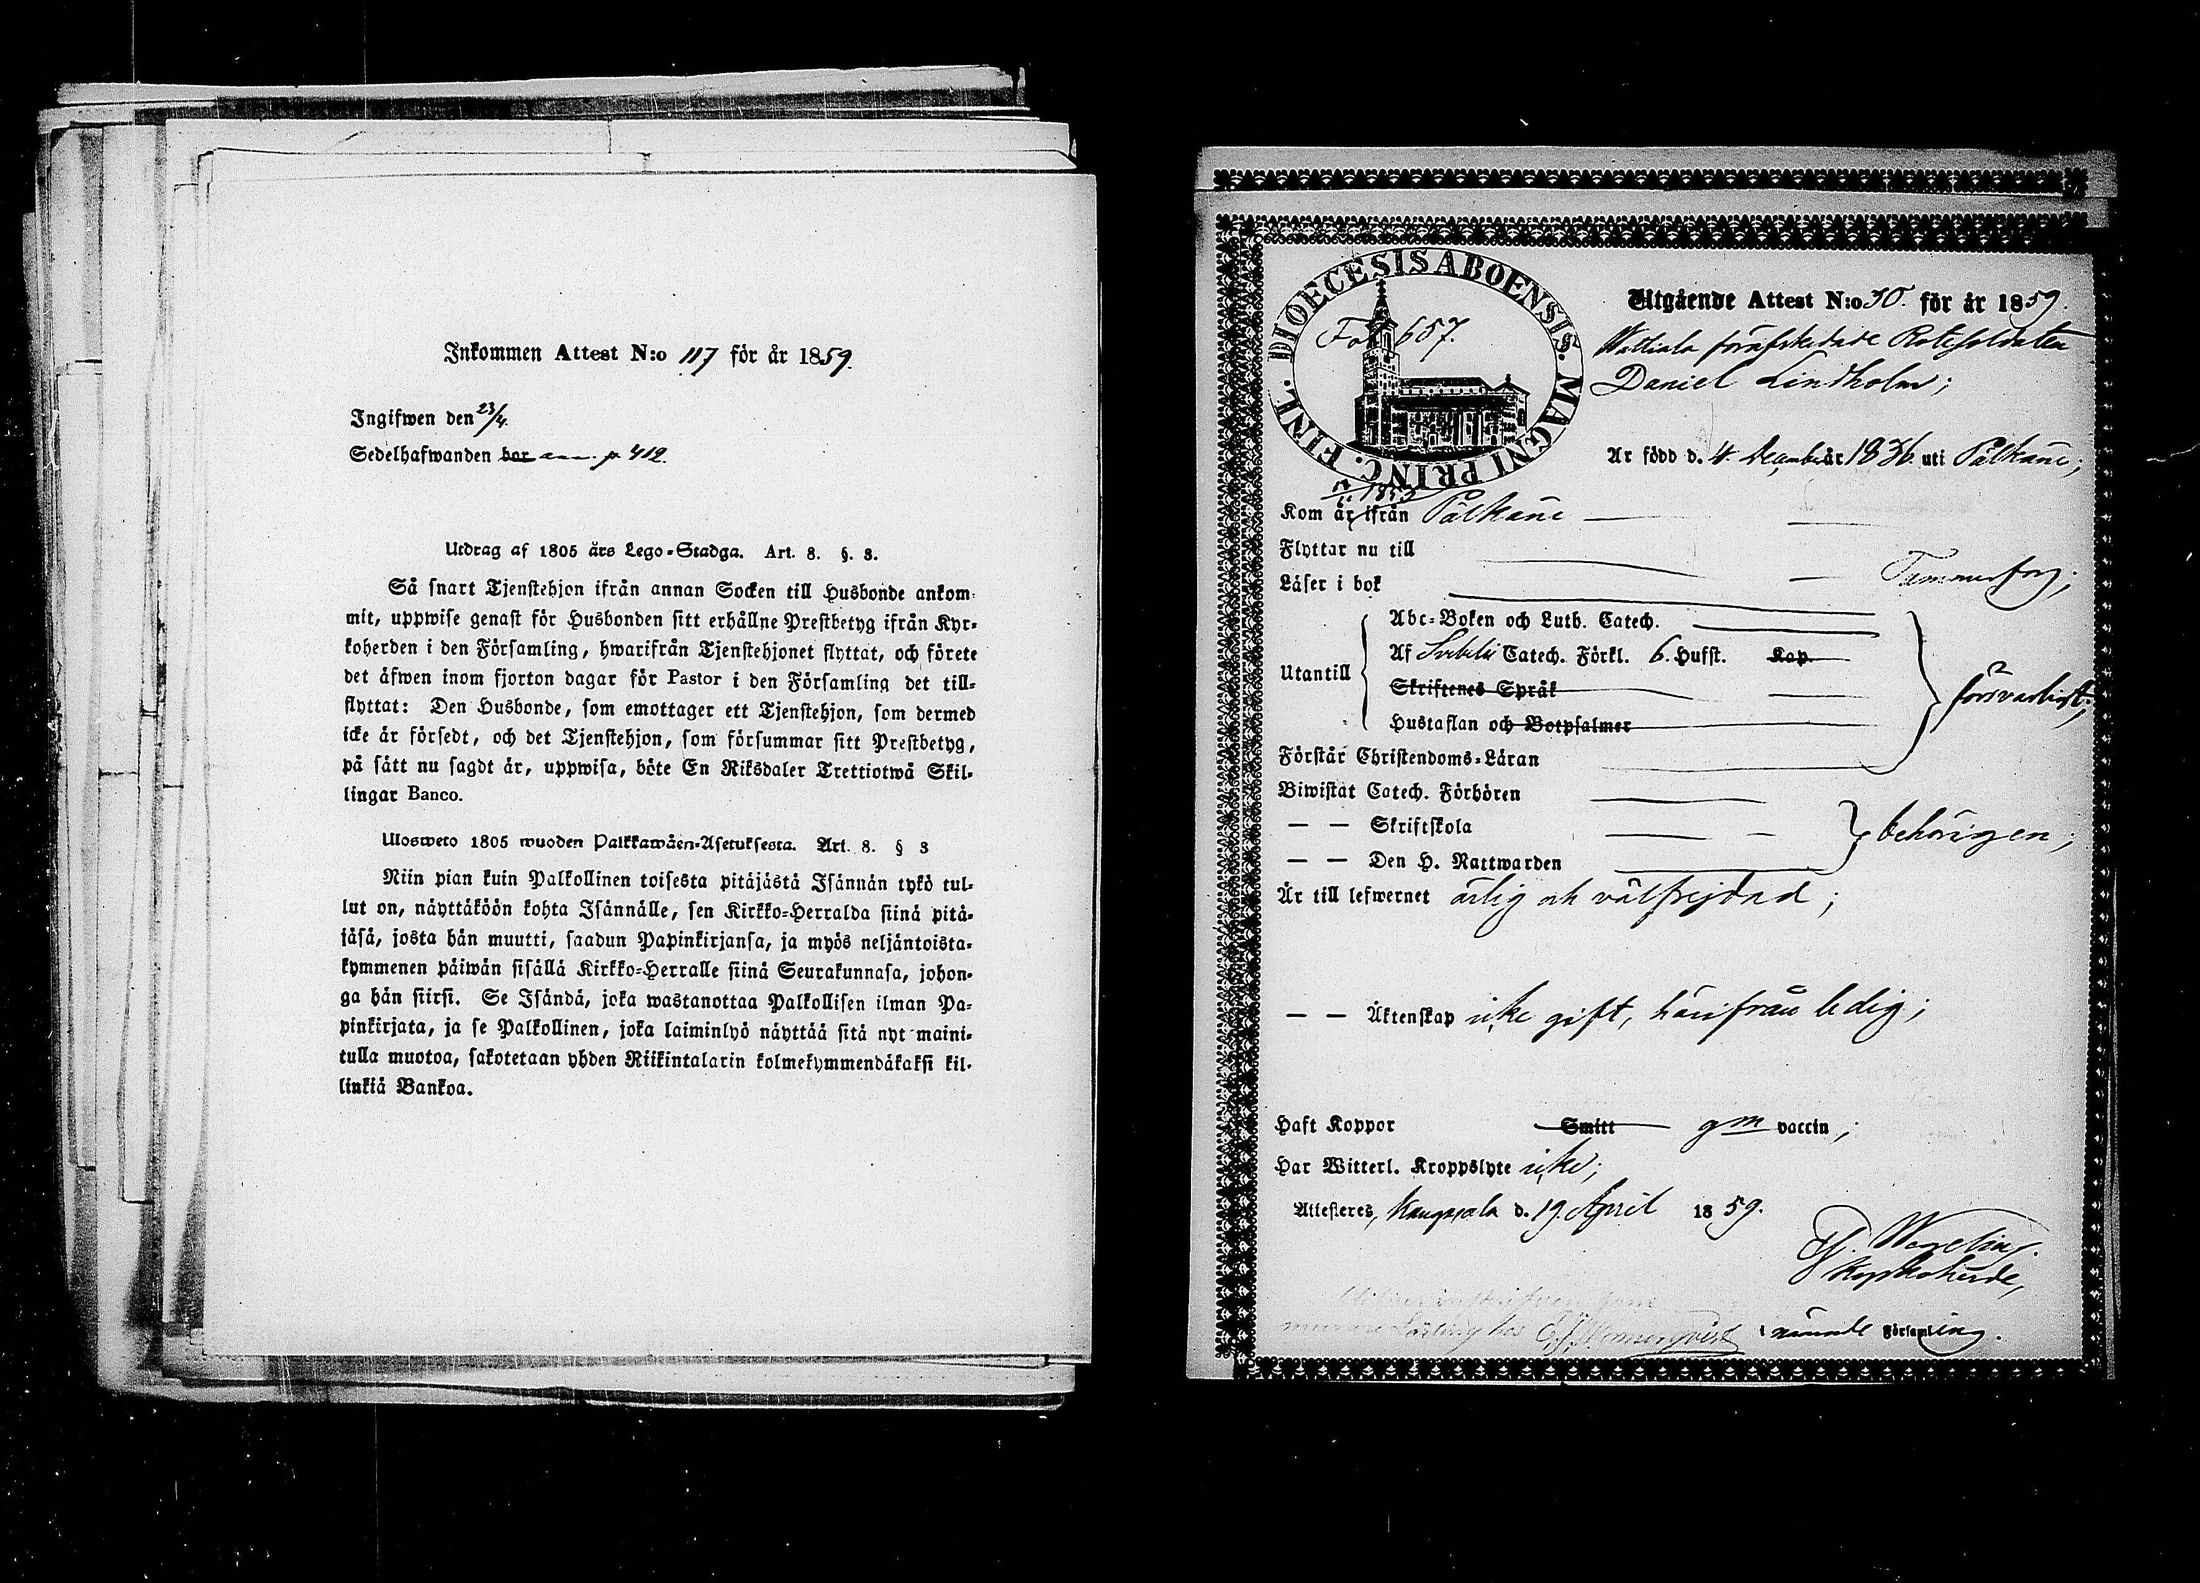 Inkommen Attest N:o 117 för år 1859.
Ingifwen den 23/4.
Sedelhafwanden bor ann. p 412.
Utdrag af 1805 års Lego-Stadga. Art. 8. §. 8.
Så snart Tjenstehjon ifrån annan Socken till Husbonde ankom-
mit, uppwise genast för Husbonden sitt erhållne Prestbetyg ifrån Kyr-
koherden i den Församling, hwarifrån Tjenstehjonet flyttat, och förete
det äfwen inom fjorton dagar för Pastor i den Församling det till-
flyttat: Den Husbonde, som emottager ett Tjenstehjon, som dermed
icke är försedt, och det Tjenstehjon, som försummar sitt Prestbetyg,
på sätt nu sagdt är, uppwisa, böte En Riksdaler Trettiotwå Skil-
lingar Banco.
Ulosweto 1805 wuoden Palkkawäen-Asetuksesta. Art. 8. § 8
Niin pian kuin Palkollinen toisesta pitäjästä Isännän tykö tul-
lut on, näyttäköön kohta Isännälle, sen Kirkko-Herralda siinä pitä-
jäsä, josta hän muutti, saadun Papinkirjansa, ja myös neljäntoista-
kymmenen päiwän sisällä Kirkko-Herralle siinä Seurakunnasa, johon-
ga hän siirsi. Se Isändä, joka wastanottaa Palkollisen ilman Pa-
pinkirjata, ja se Palkollinen, joka laiminlyö näyttää sitä nyt maini-
tulla muotoa, sakotetaan yhden Riikintalarin kolmekymmendäkaksi kil-
linkiä Bankoa.
DIOECESIS ABOENSIS. MAGNI PRINC. FINL.
Fol. 657.
Utgående Attest N:o 30. för år 1859.
Wattiala förafskedade Rotesoldaten
Daniel Lindholm;
Är född d. 4. December år 1836. uti Pälkäne;
1853
Kom år ifrån Pälkäne
Flyttar nu till
Tammerfors;
Läser i bok
Abc-Boken och Luth. Catech.
Utantill Af Svebilii Catech. Förkl. 6. Hufst. Kap.
Skriftenes Språk
försvarligt;
Hustaflan och Botpsalmer
Förstår Christendoms-Läran
Biwistat Catech. Förhören
— — Skriftskola
behörigen;
— — Den H. Nattwarden
Är till lefwernet ärlig och välfrejdad;
— — Äktenskap icke gift, härifrån ledig;
Haft Koppor Smitt gm vaccin;
Har Witterl. Kroppslyte icke;
Attesteres, Kangasala d. 19. April 1859.
Kyrkoherde,
i nämnde Församling.